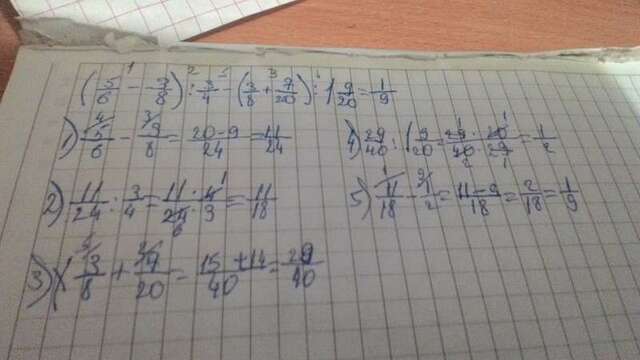 (5/6 - 3/8) : 3/4 - (3/8 + 7/20) : 1 9/20 = 1/9
1) 5/6 - 3/8 = 20-9/24 = 11/24
2) 11/24 : 3/4 = 11/24 · 4/3 = 11/18
3) 3/8 + 7/20 = 15+14/40 = 29/40
4) 29/40 : 1 9/20 = 29/40 · 20/29 = 1/2
5) 11/18 - 1/2 = 11-9/18 = 2/18 = 1/9